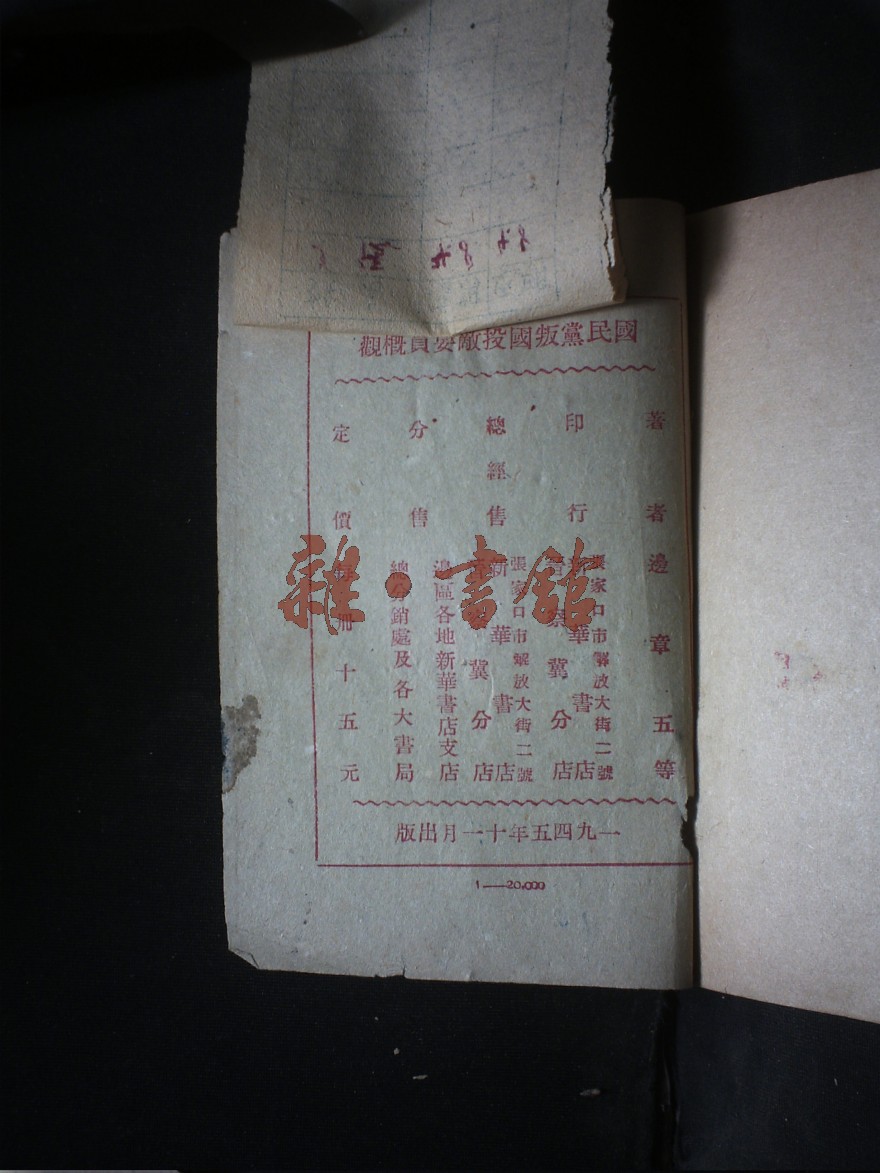 國民黨叛國投敵要員概觀
著者 邊章五等
印行 張家口市解放大街二號
新華書店
晉察冀分店
總經售 張家口市解放大街二號
新華書店
晉察冀分店
分售 邊區各地新華書店支店
總分銷處及各大書局
定價 每冊十五元
一九四五年十一月出版
1——20,000
雜·書館